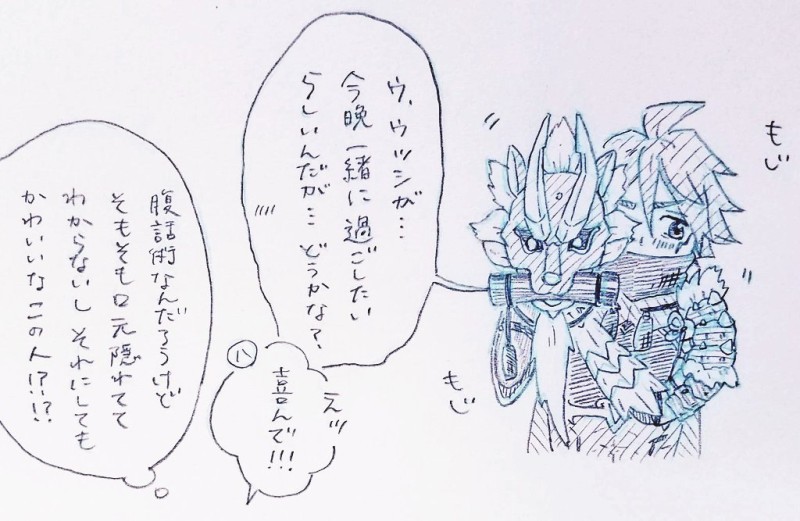 もじ
ウ、ウツシが…
今晩一緒に過ごしたい
らしいんだが… どうかな?
もじ
えッ
喜んで!!!
ハ
腹話術なんだろうけど
そもそも口元隠れてて
わからないし それにしても
かわいいなこの人!?!?